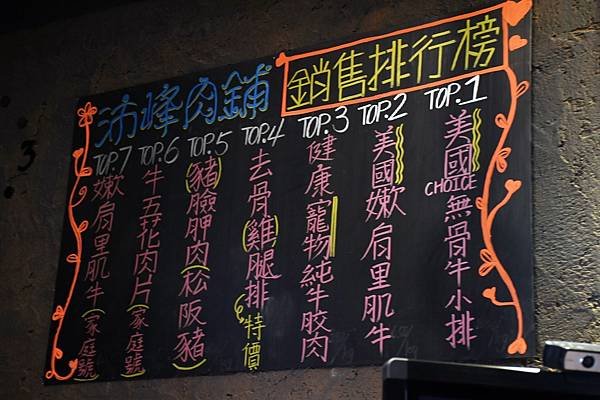 沛峰肉鋪
銷售排行榜
TOP.1
美國CHOICE無骨牛小排
TOP.2
美國嫩肩里肌牛
TOP.3
健康寵物純牛胶肉
TOP.4
去骨雞腿排特價
TOP.5
(豬)臉胛肉(松阪豬)
TOP.6
牛五花肉片(家庭號)
TOP.7
嫩肩里肌牛(家庭號)